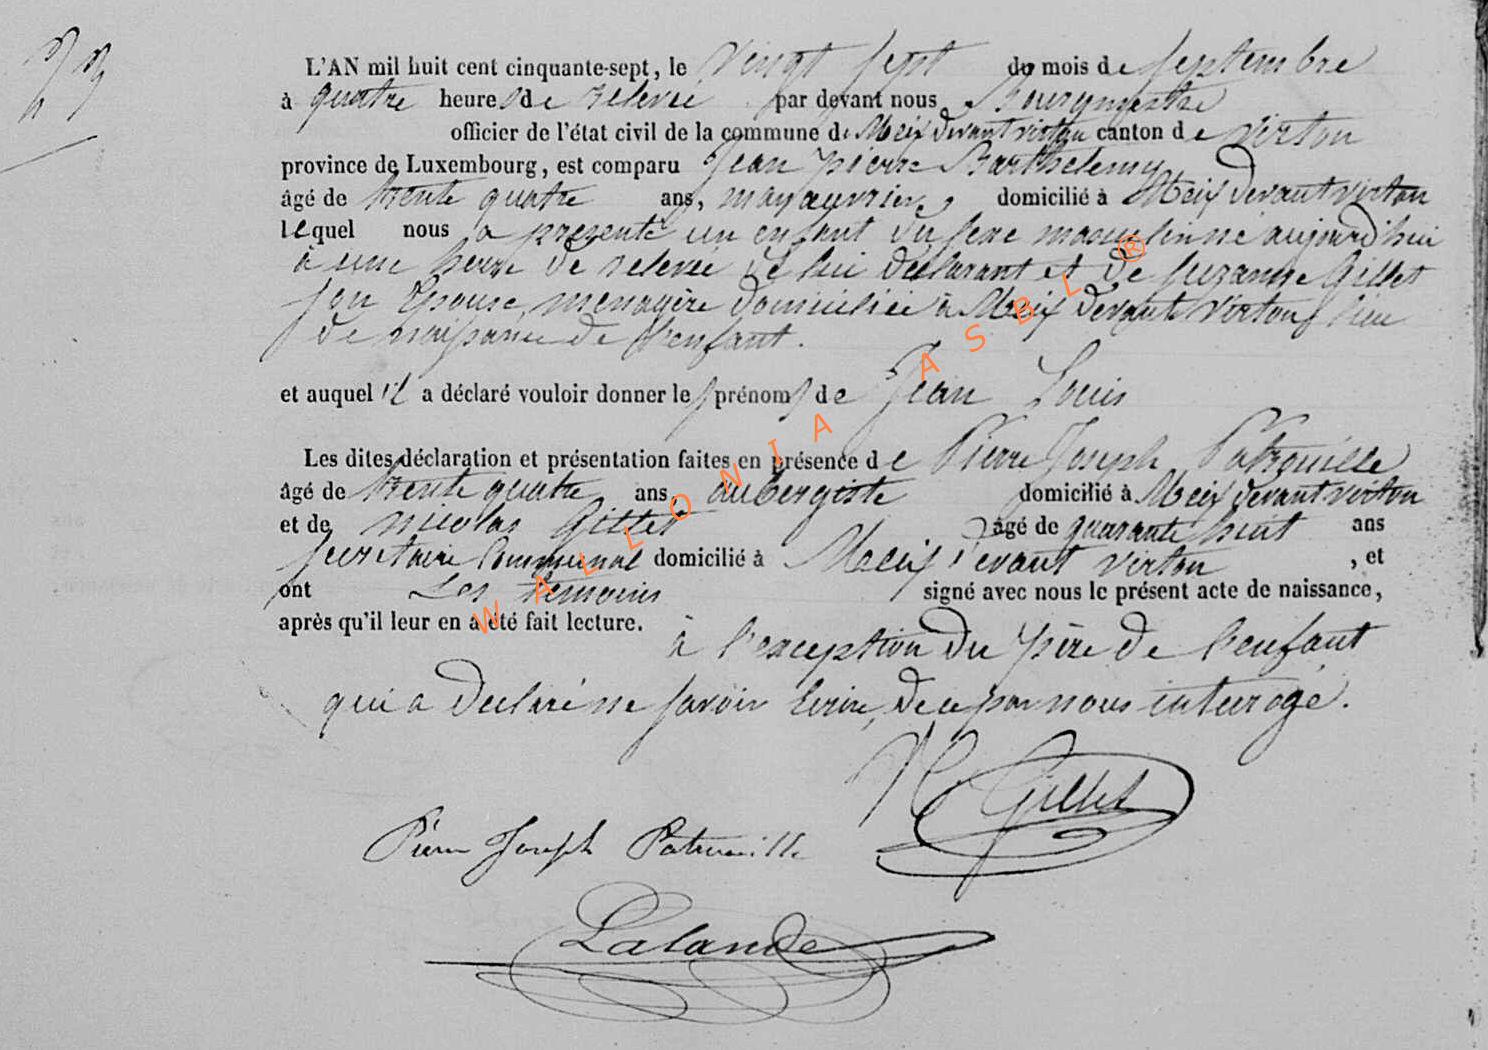 L'AN mil huit cent cinquante-sept, le vingt sept du mois de septembre
à quatre heures de relevée par devant nous Bourgmestre
officier de l'état civil de la commune de Meix devant virton canton de virton
province de Luxembourg, est comparu Jean pierre Barthelemy
âgé de trente quatre ans, manœuvrier, domicilié à Meix devant virton
lequel nous a presenté un enfant du sexe masculin né aujourd'hui
à une heure de relevée de lui déclarant et de suzanne Gillet
son Epouse, menagère domiciliée à Meix devant virton, lieu
de naissance de l'enfant.
et auquel il a déclaré vouloir donner les prénoms de Jean Louis
Les dites déclaration et présentation faites en présence de Pierre Joseph Patrouille
âgé de trente quatre ans, aubergiste domicilié à Meix devant virton
et de nicolas Gillet âgé de quarante huit ans
secretaire Communal domicilié à Meix devant virton, et
ont Les temoins signé avec nous le présent acte de naissance,
après qu'il leur en a été fait lecture.
à l'exception du père de l'enfant
qui a declaré ne savoir Ecrire, de ce par nous interrogé.
N Gillet
Pierre Joseph Patrouille
Lalande
WALLONIA ASBL ®